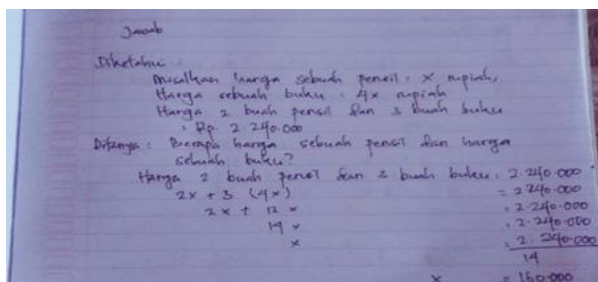 Jawab
Diketahui :
Misalkan harga sebuah pensil : x rupiah,
Harga sebuah buku : 4x rupiah
Harga 2 buah pensil dan 3 buah buku
: Rp. 2.240.000
Ditanya : Berapa harga sebuah pensil dan harga
sebuah buku?
Harga 2 buah pensil dan 3 buah buku : 2.240.000
2x + 3 (4x) = 2.240.000
2x + 12 x = 2.240.000
14 x = 2.240.000
x = 2.240.000
14
x = 160.000